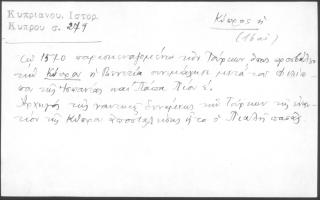 Κυπριανου. Ιστορ.
Κυπρου σ. 279
Κύπρος ἡ
(16 αἰ)
Τῷ 1570 παρασκευαζομένων τῶν Τούρκων ὅπως προσβάλουν
τὴν Κύπρον ἡ Βενετία συνεμάχησε μετὰ τοῦ Φιλίπ-
που τῆς Ἱσπανίας καὶ Πάπα Πίου Ε.
Ἀρχηγὸς τῆς ναυτικῆς δυνάμεως τῶν Τούρκων τῆς ἐναν-
τίον τῆς Κύπρου ἀποσταλείσης ἦτο ὁ Πιαλῆ πασᾶς.